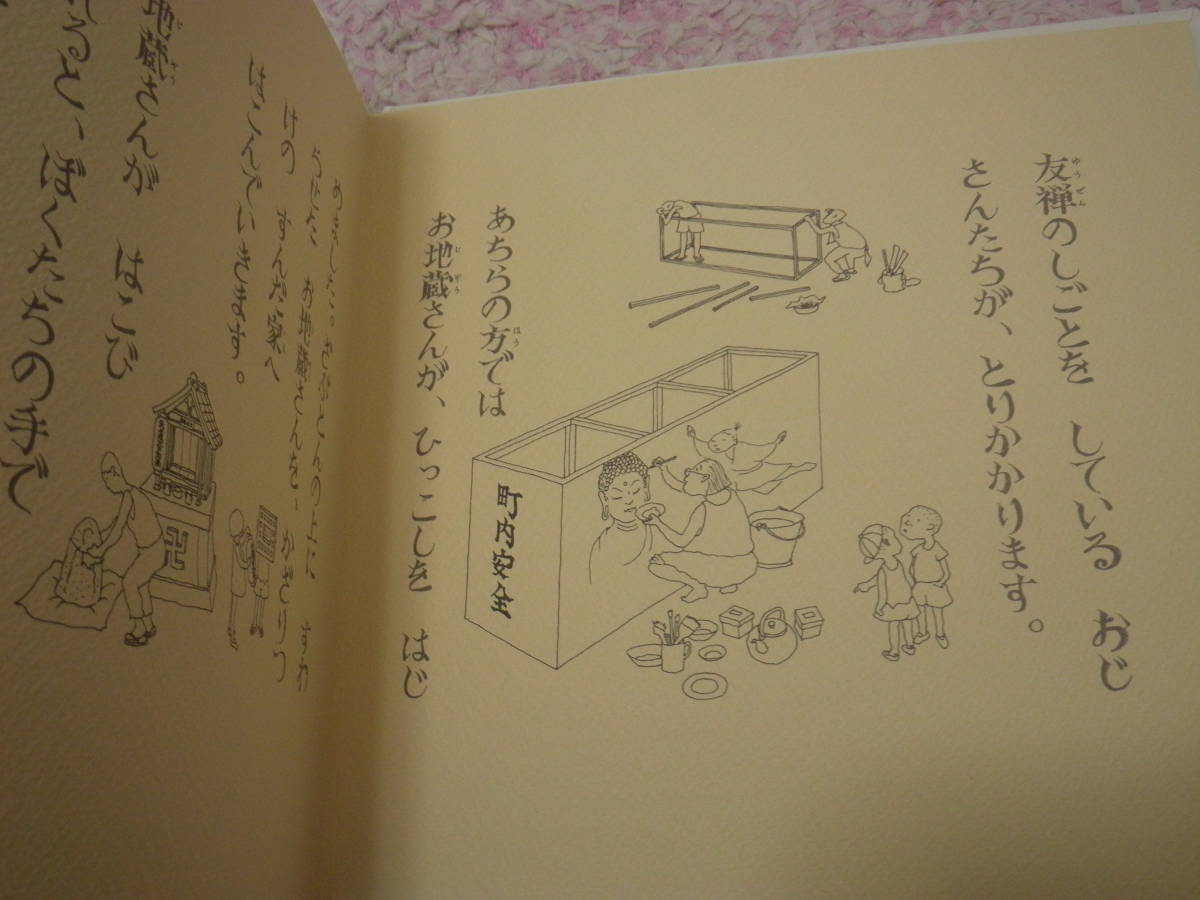 友禅のしごとを している おじ
さんたちが、とりかかります。
あちらの方では
お地蔵さんが、ひっこしを はじ
町内安全
めました。ざぶとんの上に すわ
らせた お地蔵さんを、かざりつ
けの すんだ家へ
はこんでいきます。
卍
地蔵さんが はこび
れると、ぼくたちの手で